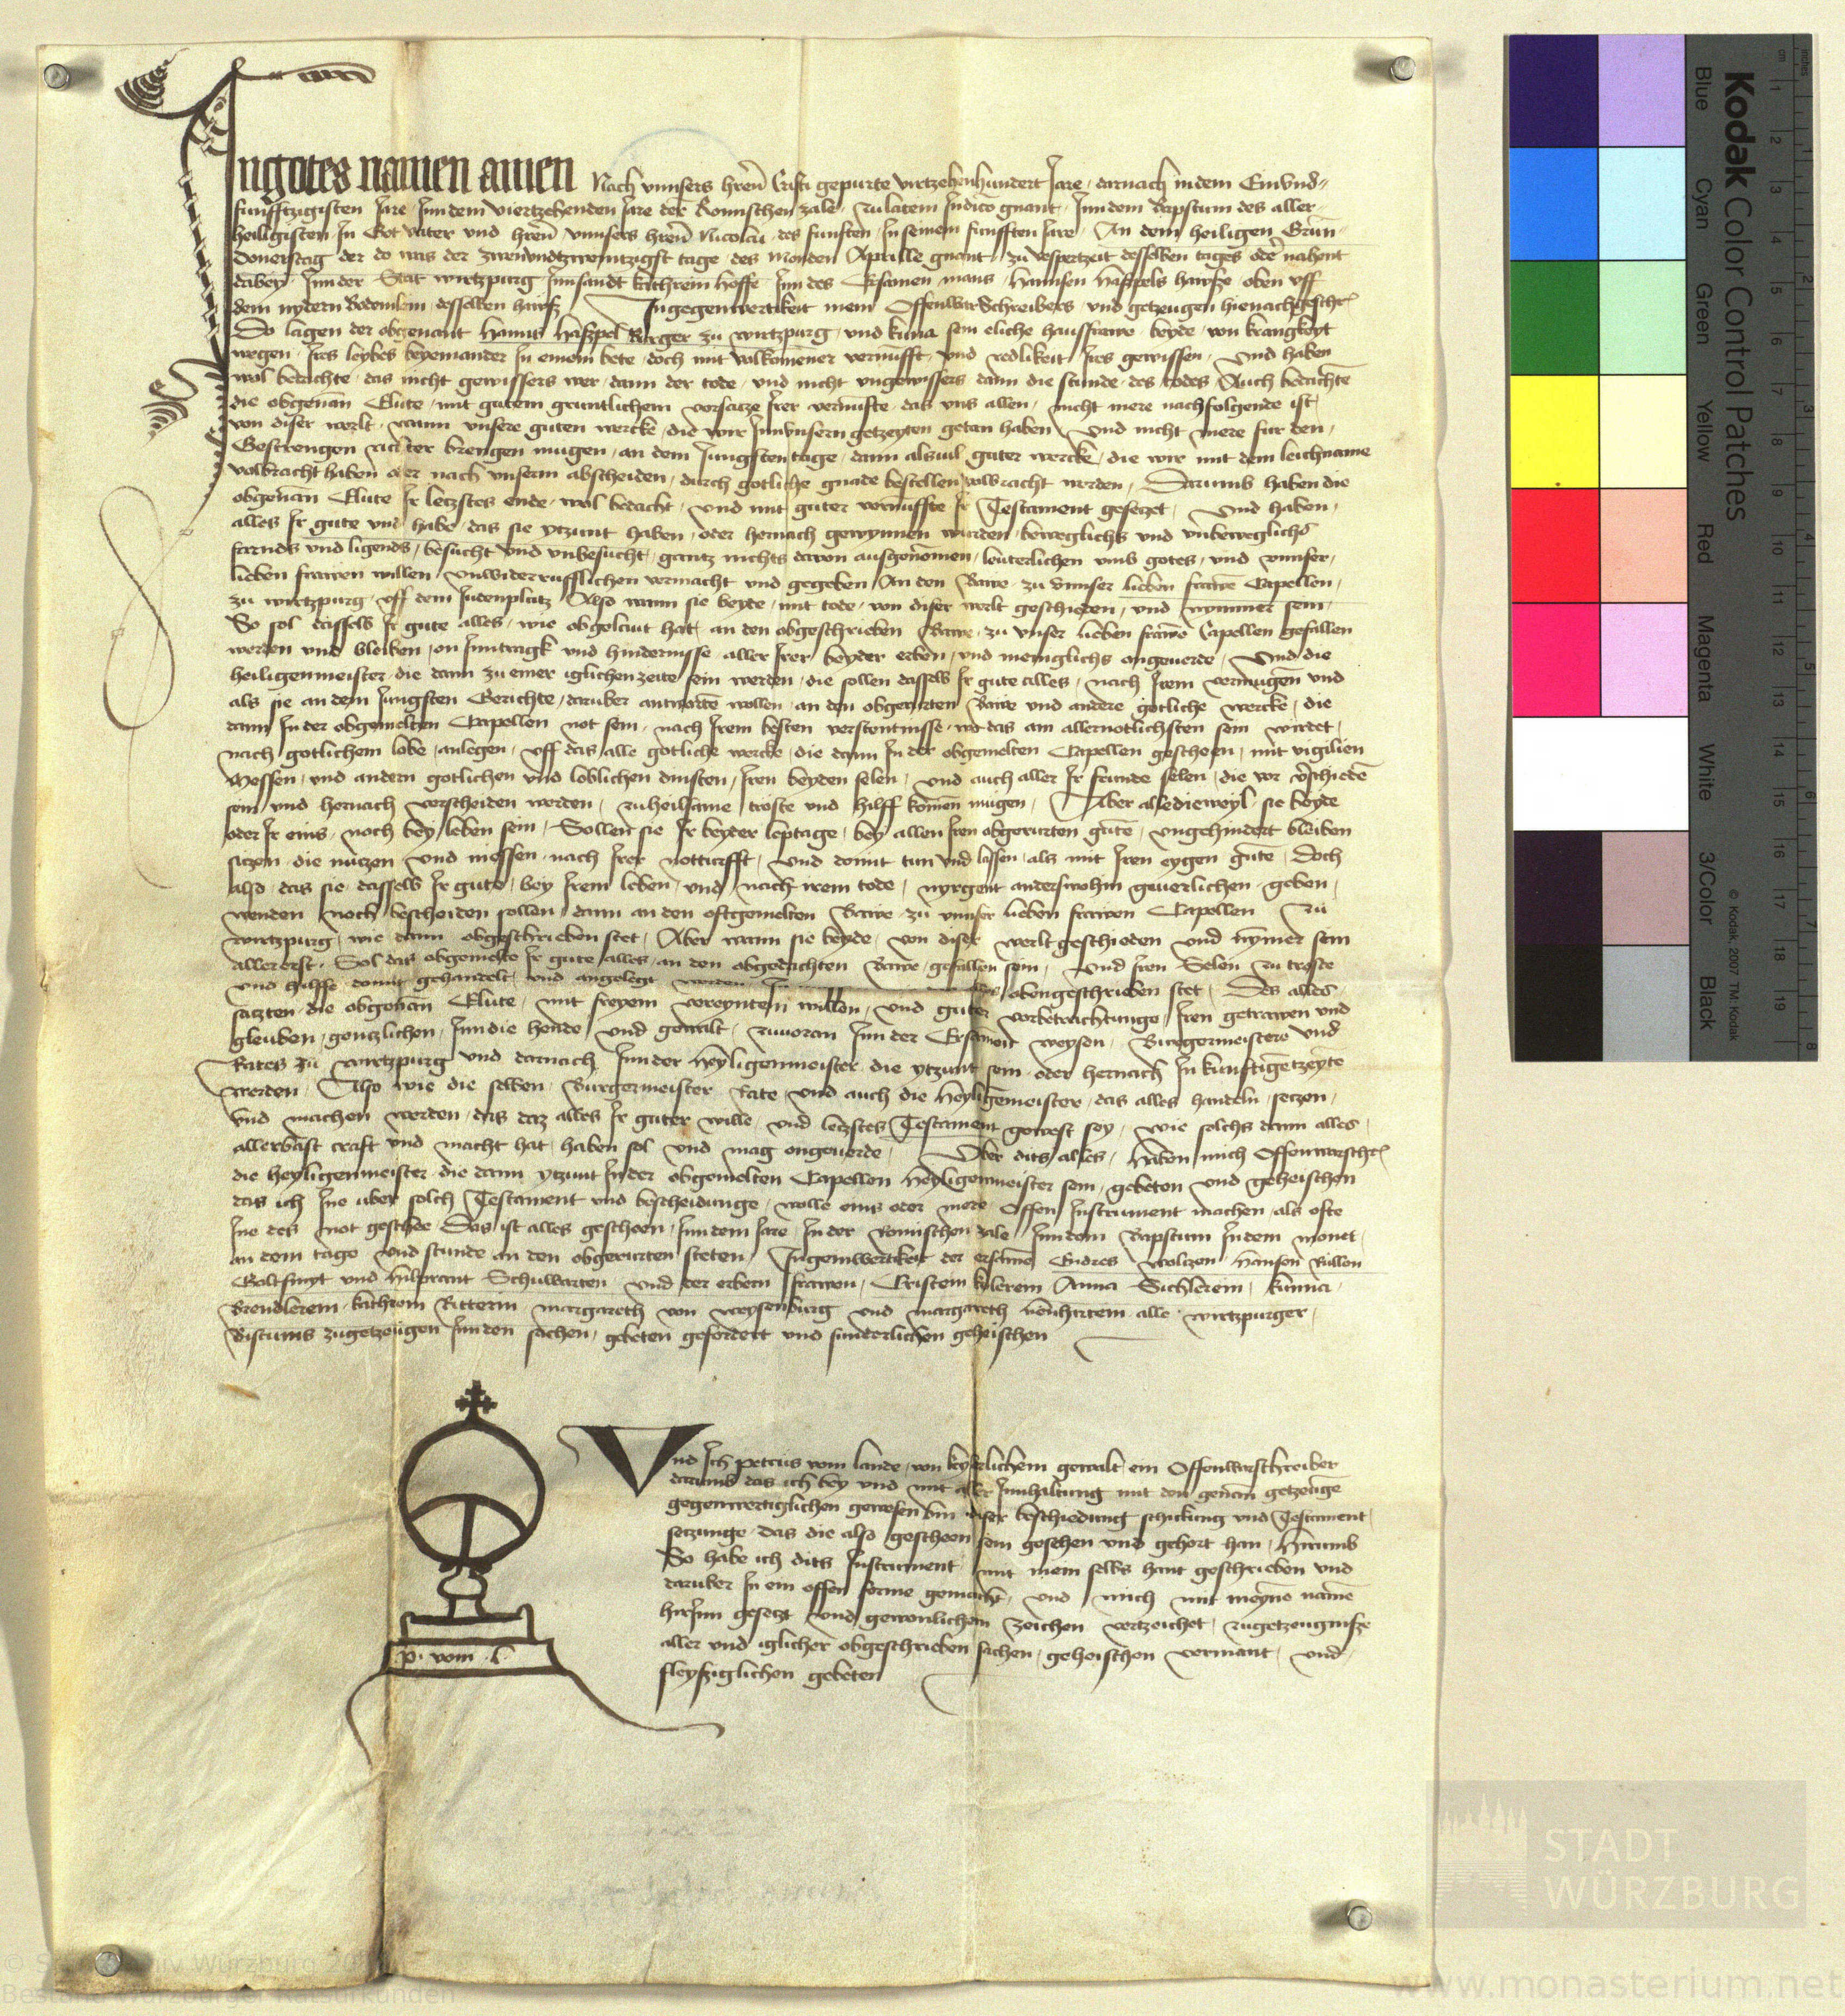 In gotes namen amen Nach vnnsers hren̄ Cristi gepurte virtzehenhundert Jare, darnach in dem Einvnd-
funfftzigisten Jare, Inn dem viertzehenden Jare der Romischen zale, zu latein Indicō gnant, Inn dem Bapstum des aller-
heiligisten In Got vater vnd hren̄ vnnsers hren̄ Nicolai, des funften, In seinem funfften Jare, An dem heiligen Grun-
donerstag der do was der zweiundtzweintzigst tage, des Monden Aprille gnant, zu vespertzeit desselben tages oder nahent
dabey, Inn der Stat wirtzpurg Inn sandt kathrein hoffe Inn des Ersamen mans hannsen haspels hawse oben vff
dem nydern Bodemlein desselben hawſz Ingegenwertikeit mein OffenwarSchreibers vnd getzeugen hienachgeschr
Do lagen der obgenant hanns haszpel Burger zu wirtzpurg vnd kuna sein eliche hausfrawe beyde, von krangkeyt
wegen, Irs leybes beyeinander In einem bete, doch mit volkomener vernufft, vnd redlikeit Irs gewissen, Vnd haben
wol bedachte, das nicht gewissers wer, dann der tode, vnd nicht vngewissers dann die stunde, des todes, Auch bedachtē
die obgenan̄ Elute, mit gutem gruntlichem vorsatze Irer vernufte, das vns allen, nicht mere nachfolgende ist
von diser werlt, wann vnsere guten wercke, die wir Inn vnsern getzeyten getan haben, Vnd nicht mere fur den,
Gestrengen richter brengen mugen, an dem Jungsten tage, dann alsuil guter wercke, die wir mit dem leichname
volbracht haben oder nach vnserm abscheiden, durch gotliche gnade bestellen volbracht werden, Darumb haben die
obgenan̄ Elute Ir letzstes ende, wol bedacht, vnd mit guter vernuffte Ir Testament gesetzet, Vnd haben,
alles Ir gute vnd habe, das sie ytzunt haben, oder hernach gewynnen wurden, beweglichs vnd vnbeweglichs
farnds vnd ligends, besucht vnd vnbesucht, gantz nichts dauon ausgenomen, leuterlichen vmb gotes, vnd vnnser,
lieben frawen willen, vnwiderrufflichen vermacht vnd gegeben, An den Bawe, zu vnnser lieben frawē Capellen,
zu wirtzpurg, vff dem Judenplatz, Also wann sie beyde, mit tode, von diser werlt geschieden, vnd nymmer sein,
So sol dasselb Ir gute alles, wie obgelaut hat, an den obgeschrieben Bawe, zu vnser lieben frawē Capellen gefallen
werden vnd bleiben, on Inntragk vnd hindernisse aller Irer beyder erben, vnd meniglichs ongeuerde, Vnd die
heiligenmeister, die dann zu einer iglichen zeite sein werden, die sollen dasselb Ir gute alles, nach Irem vermugen vnd
als sie an dem Jungsten Gerichte, daruber antworten wollen, an den obgerurten Bawe vnd andere gotliche wercke, die
dann In der obgemelten Capellen not sein, nach Irem besten verstentnisse, wo das am allernotlichsten sein wirdet,
nach gotlichem lobe, anlegen, vff das alle gotliche wercke, die dann In der obgemelten Capellen gescheen, mit vigilien
Messen, vnd andern gotlichen vnd loblichen dinsten, Iren beyden selen, vnd auch aller Ir frunde selen, die vor v̄schiedē
sein vnd hernach verscheiden werden, zu heilsame troste vnd hilff komen mugen, Aber alledieweyl sie beyde
oder Ir eins, noch bey leben sein, Sollen sie Ir beyder leptage, bey allen Iren obgerurten gute, vngehindert bleiben
sitzen, die nutzen vnd niessen, nach Irer notturfft, vnd domit tun vnd lassen, als mit Iren eygen gute, Doch
also, das sie dasselb Ir gute, bey Irem leben, vnd nach irem tode, nyrgent anderswohin geuerlichen geben,
wenden noch bescheiden sollen, dann an den oftgemelten Bawe, zu vnnser lieben frawen Capellen zu
wirtzpurg, wie dann obgeschrieben stet, Aber wann sie beyde, von diser werlt geschieden vnd nymer sein
allererst, Sol das obgemelte Ir gute alles, an den obgedachten Bawe, gefallen sein, Vnd Iren Selen zu troste
vnd hilffe, domit gehandelt, vnd angelegt werden obengeschrieben stet, Des alles,
satzten, die obgenan̄ Elute, mit freyem vereynten willen, vnd guter vorbetrachtunge, Iren getrawen vnd
glauben, gentzlichen, Inn die hende, vnd gewalt, zuuoran Inn der Ersamen weysen, Burgermeistere vnd
Rates zu wirtzpurg vnd darnach, Inn der heyligenmeister, die ytzunt sein, oder hernach In kunftigē tzeyte
werden, Also wie die selben, Burgermeister, Rate, vnd auch die heyligēmeister, das alles handeln, setzen,
vnd machen werden, das daz alles Ir guter wille, vnd letzstes Testament gewest sey, wie solchs dann alles,
allerbast craft vnd macht hat, haben sol vnd mag ongeuerde, Vber dits alles, haben mich Offenwarschr
die heyligenmeister, die dann ytzunt In der obgemelten Capellen heyligenmeister sein, gebeten vnd geheischen
das ich Ine uber solch Testament vnd bescheidunge, wolle eins oder mere Offen Instrument machen als ofte
Ine des not geschee, Das ist alles gescheen, Inn dem Jare, In der Romischen zale, Inn dem Bapstum In dem monet,
an dem tage vnd stunde an den obgerurten steten, Ingeinwertikeit der ersamē Endres woltzen hansen Rullen
Goltsmyt vnd hilprant Schuwarten vnd der erbern frawen, Cristein kelerein Anna Sichlerein, kunna,
Brendlerein kathrein Ritterin margareth von weysenburg vnd margareth alle wirtzpurger,
Bistumbs zu getzeugen Inn den sachen, gebeten gefordert vnd sunderlichen geheischen
Vnd Ich Petrus vom lande, von keyserlichem gewalt ein Offenwarschreiber
darumb das ich bey vnd mit aller Innhaltung mit den genan̄ getzeugē
gegenwertiglichen gewesen bin, diser beschiedung schickung vnd Testament,
setzunge, das die also gescheen sein gesehen vnd gehort han, Hirumb
So habe ich dits Instrument mit mein selbs hant geschrieben vnd
daruber In ein offen forme gemacht, vnd mich mit meyne namē
hirInn gesetzt vnd gewonlichem zeichen vertzeichet, zu getzeugnisze
aller vnd iglicher obgeschrieben sachen, geheischen vermant, vnd
fleysziglichen gebeten
p. vom l
Kodak Color Control Patches
Blue Cyan Green Yellow Red Magenta White 3/Color Black
© Kodak, 2007 TM: Kodak
cm 1 2 3 4 5 6 7 8 9 10 11 12 13 14 15 16 17 18 19
inches 1 2 3 4 5 6 7 8
STADT
WÜRZBURG
www.monasterium.net